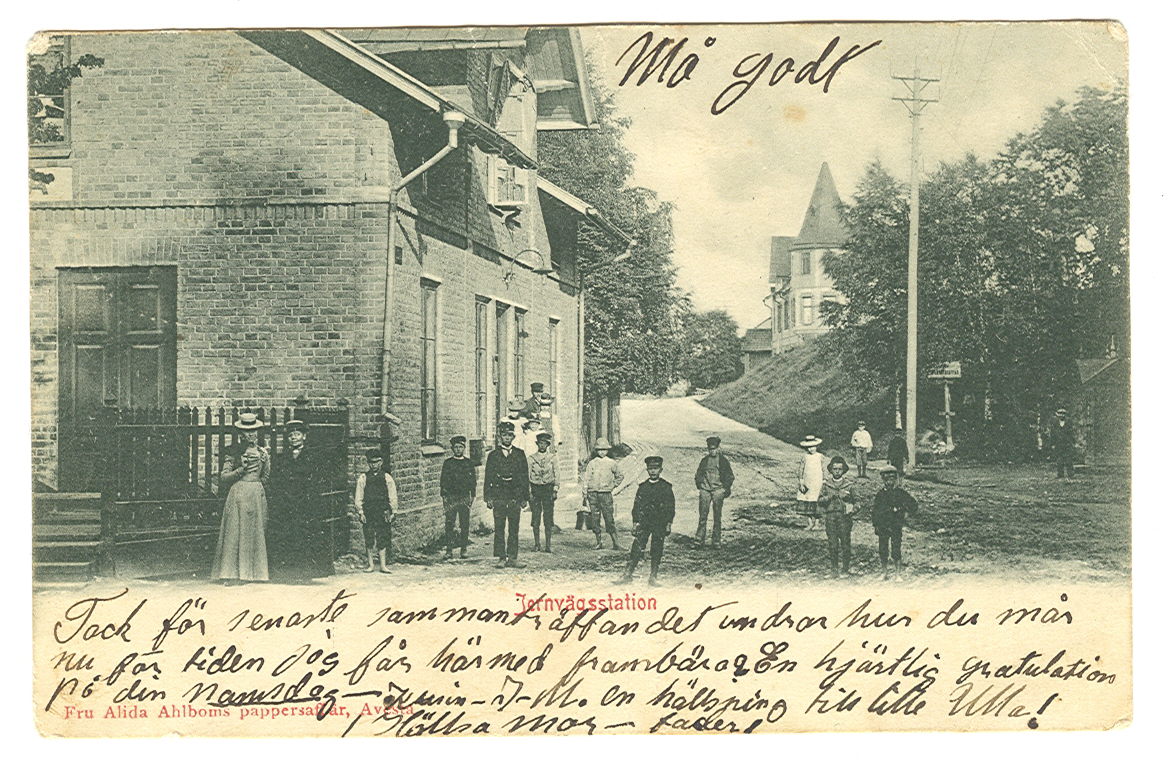 Må godt
Jernvägsstation
Tack för senaste sammanträffandet undrar hur du mår
nu för tiden Jog får härmed frambära En hjärtlig gratulation
på din namsdag — — M. en hälsning till lille Ulla!
Fru Alida Ahlboms pappersaffär, Avesta
Hälsa Mor — fader!